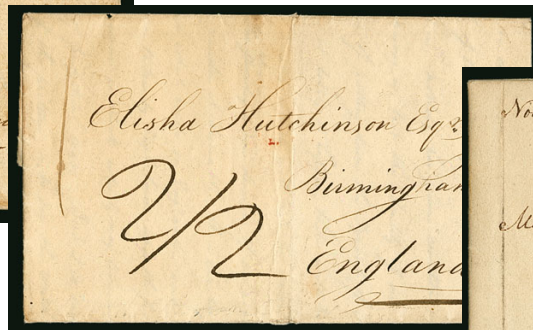 Elisha Hutchinson Esqr
Birmingham
2/2
England